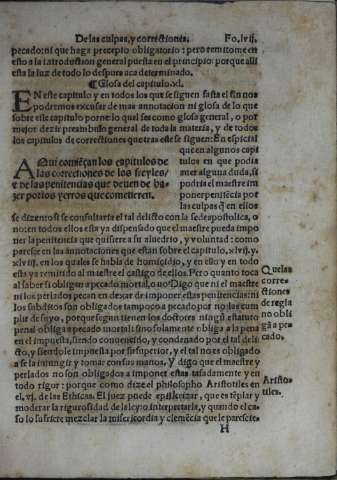 De las culpas, y correctiones. Fo. lvij.
pecado: ni que haga precepto obligatorio: pero remitome en
esto a la introduction general puesta en el principio: porque assi
esta la luz de todo lo despues aca determinado.
¶ Glosa del capitulo. xl.
EN este capitulo y en todos los que se siguen fasta el fin nos
podremos escusar de mas annotacion ni glosa de lo que
sobre este capitulo porne lo qual ser como glosa general, o por
mejor dezir preambulo general de toda la materia, y de todos
los capitulos de correctiones que tras este se siguen: En especial
que en algunos capi
tulos en que podia
mer alguna duda, si
podria el maestre im
poner penitẽcia por
las culpas q̃ en ellos
AQui comiẽçan los capitulos de
las correctiones de los freyles/
y de las penitencias que deuen de ha-
zer por los yerros que cometieren.
se dizen to se consultaria el tal delicto con la sede apostolica, o
no: en todos ellos esta ya dispensado que el maestre pueda impo
ner la penitencia que quisiere a su aluedrio, y voluntad: como
paresce en las annotaciones que estan sobre el capitulo. xlvij. y.
xlviij. en los quales se habla de homicidio, y en esto y en todo
esta ya remitido al maestre el castigo de ellos. Pero quanto toca
al saber si obligan a pecado mortal, o no: Digo que ni el maestre
ni los perlados pecan en dexar de imponer estas penitencias: ni
los subditos son obligados tampoco a pecado por no las cum
plir de suyo, porque segun tienen los doctores ningũ estatuto
penal obliga a pecado mortal: sino solamente obliga a la pena
en el impuesta, siendo conuencido, y condenado por el tal delic
to, y siendole impuesta por su superior, y el tal no es obligado
a se la iniungir y tomar con sus manos. Y digo que el maestre y
perlados no son obligados a imponer estas tasadamente y en
todo rigor: porque como dize el philosopho Aristotiles en
el. vj. de las Ethicas. El juez puede epilkeizar, que es tẽplar y
moderar la rigurosidad de la ley o interpretarla, y quando el ca-
so lo sufriere mezclar la misericordia y clemẽcia que le paresciere
Que las
corre-
ctiones
de regla
no obli
gã a pe-
cado.
Aristo-
tiles.
H